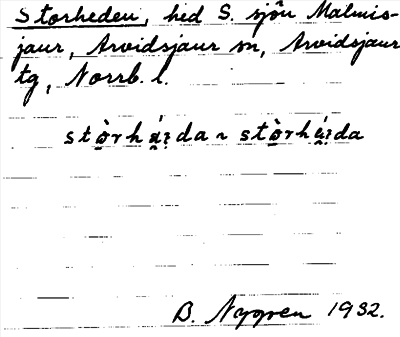 Storheden, hed S. sjön Malmis-
jaur, Arvidsjaur sn, Arvidsjaur
tg, Norrb. l.
stò̠rhá̠i̭da ~ stò̠rhá̠i̭da
B. Nygren 1932.